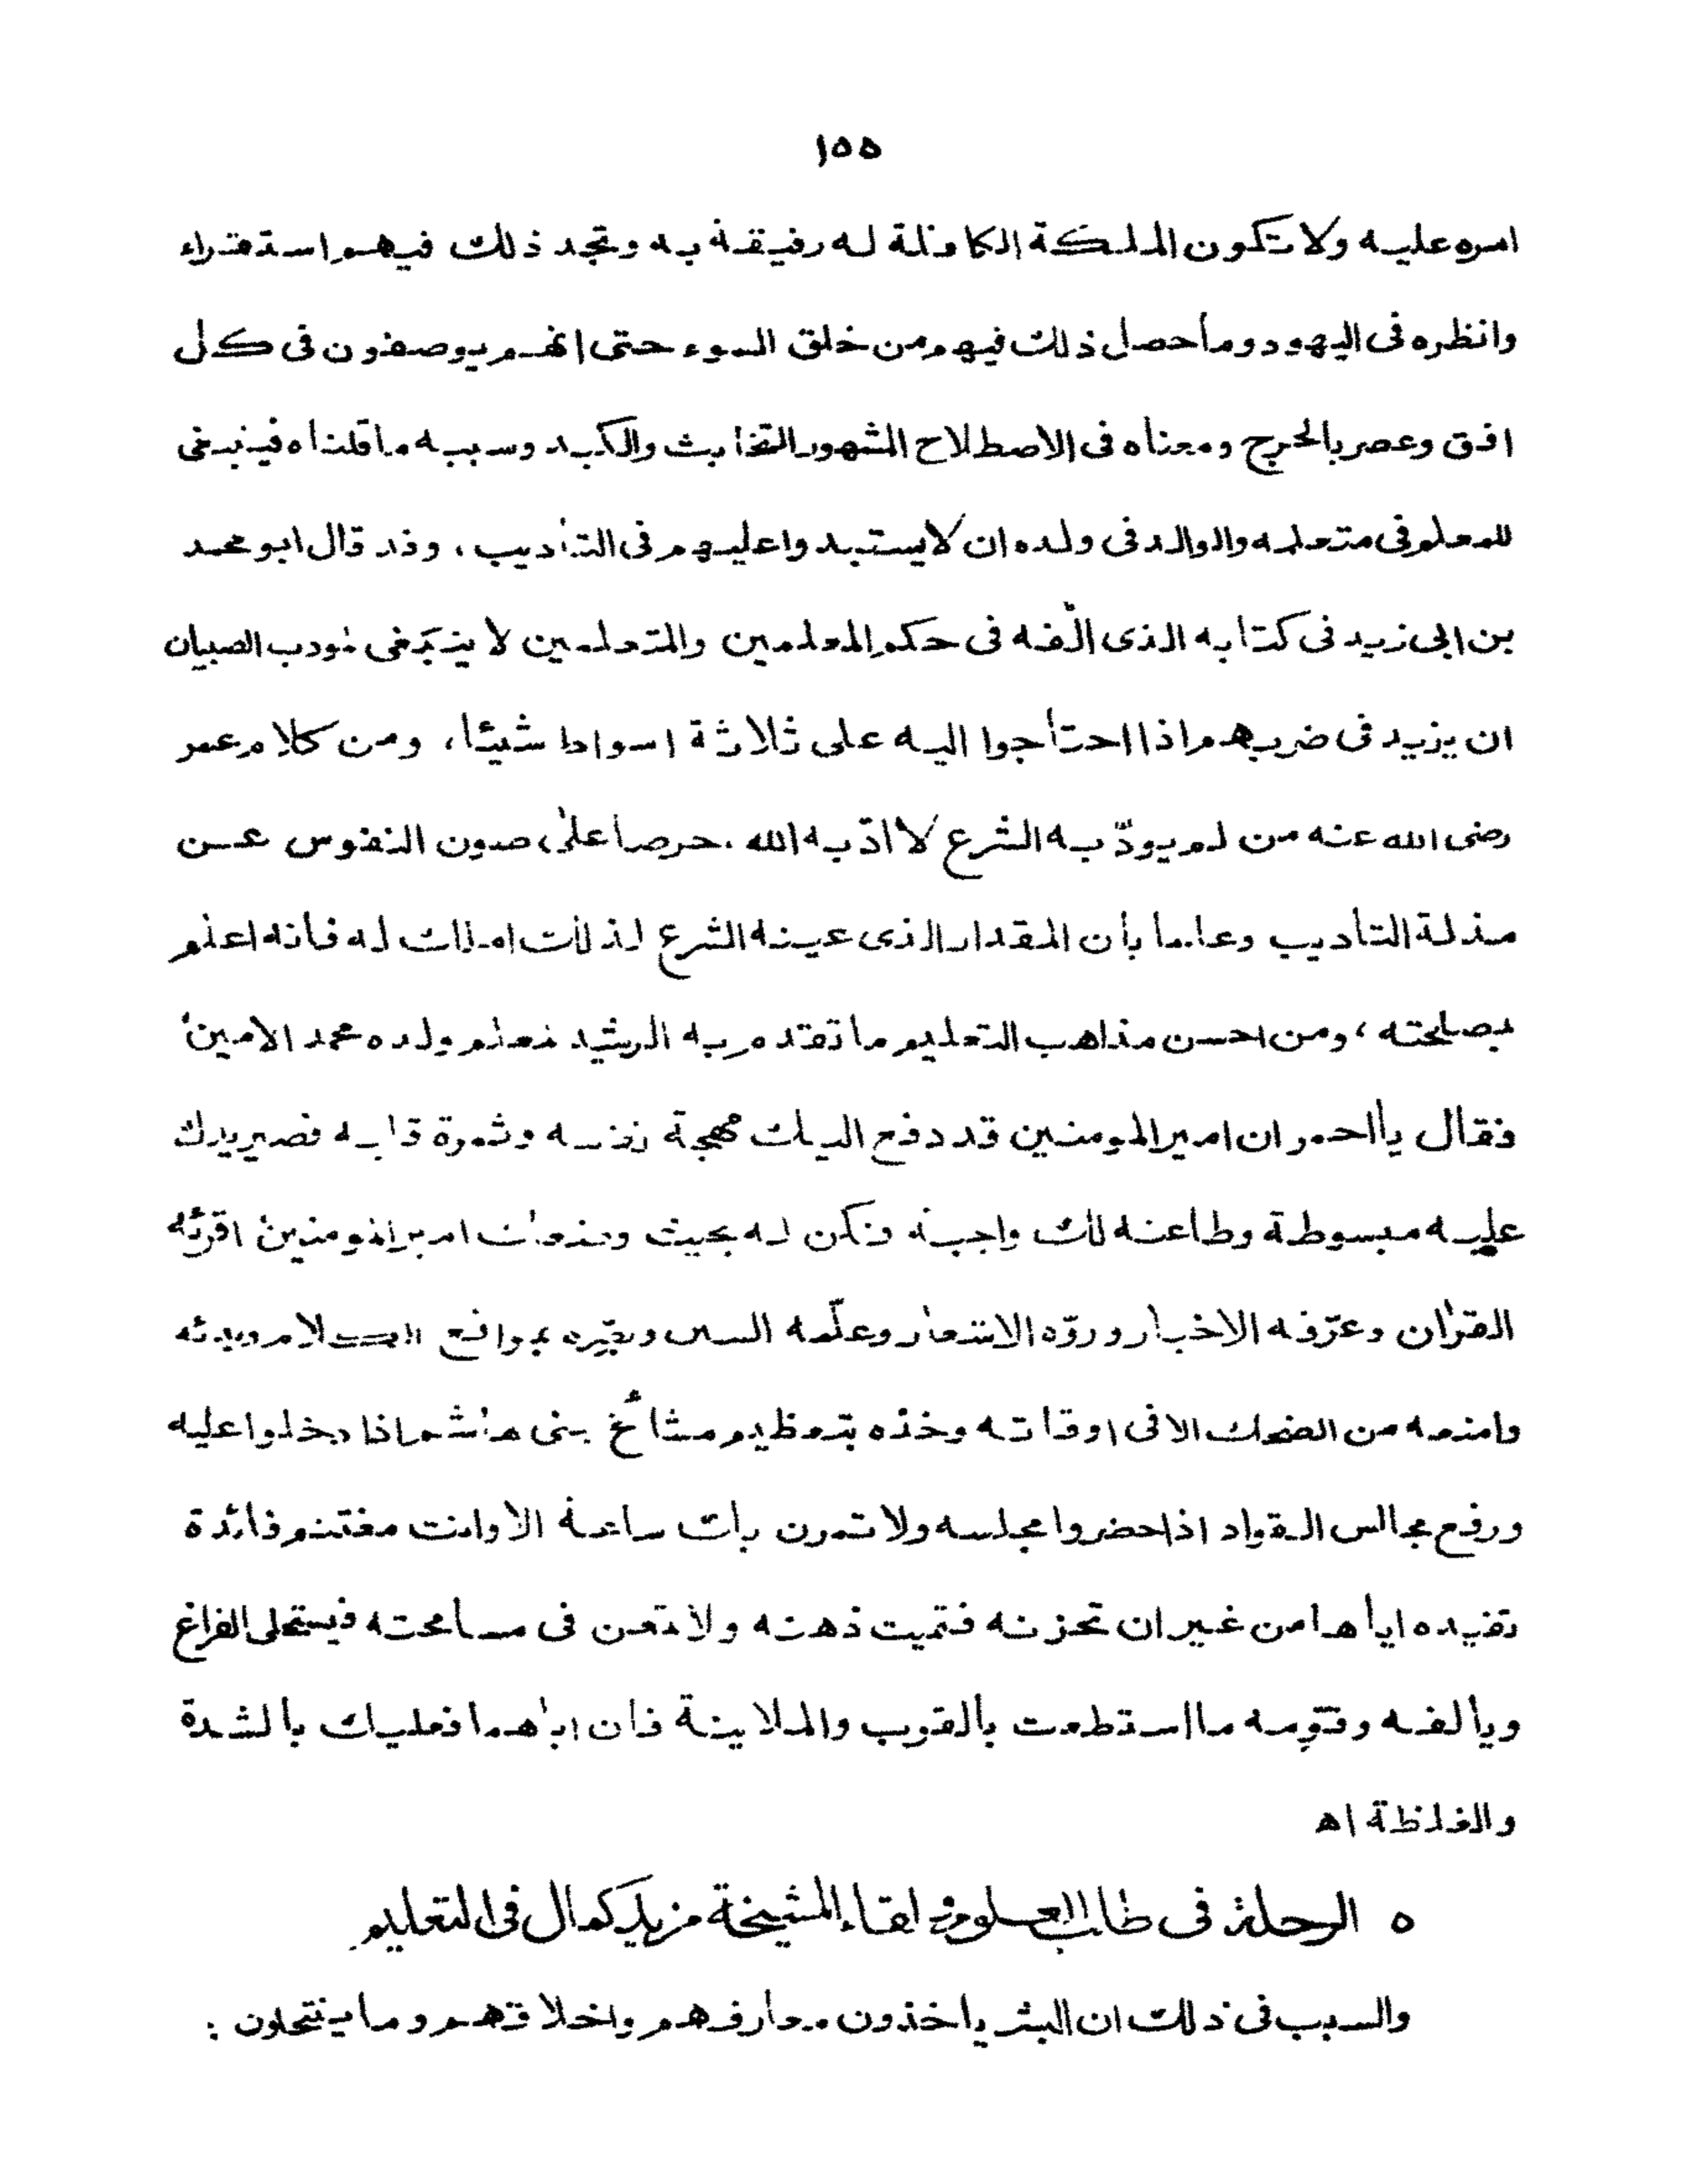 ١٥٥
امره عليه ولا تكون الملكة الكافلة له رفيقة به وتجد ذلك فيهم استقراء
وانظره فى اليهود وما حصل ذلك فيهم من خلق السوء حتى انهم يوصفون فى كل
افق وعصر بالحرج ومعناه فى الاصطلاح المشهور التخابث والكيد وسببه ما قلناه فينبغى
للمعلم فى متعلمه والوالد فى ولده ان لا يستبدوا عليهم فى التأديب ، وقد قال ابو محمد
بن ابى زيد فى كتابه الذى الّفه فى حكم المعلمين والمتعلمين لا ينبغى لمودب الصبيان
ان يزيد فى ضربهم اذا احتاجوا اليه على ثلاثة اسواط شيئا ، ومن كلام عمر
رضى الله عنه من لم يودّبه الشرع لا ادّبه الله ، حرصا على صون النفوس عن
مذلة التأديب وعلما بأن المقدار الذى عينه الشرع لذلك املك له فانه اعلم
بمصلحته ، ومن احسن مذاهب التعليم ما تقدم به الرشيد لمعلم ولده محمد الامين
فقال يا احمر ان امير المومنين قد دفع اليك مهجة نفسه وثمرة قلبه فصير يدك
عليه مبسوطة وطاعته لك واجبة فكن له بحيث وضعك امير المومنين اقرئه
القرأن وعرّفه الاخبار وروّه الاشعار وعلّمه السنن وبصّره بمواقع الكلام وبدئه
وامنعه من الضحك الا فى اوقاته وخذه بتعظيم مشائخ بنى هاشم اذا دخلوا عليه
ورفع مجالس القواد اذا حضروا مجلسه ولا تمرن بك ساعة الا وانت مغتنم فائدة
تفيده اياها من غير ان تحزنه فتميت ذهنه ولا تمعن فى مسامحته فيستحلى الفراغ
ويالفه وقوّمه ما استطعت بالقرب والملاينة فان اباهما فعليك بالشدة
والغلظة اه
٥ الرحلة فى طلب العلوم ولقاء المشيخة مزيد كمال فى التعليم
والسبب فى ذلك ان البشر يأخذون معارفهم واخلاقهم وما ينتحلون :